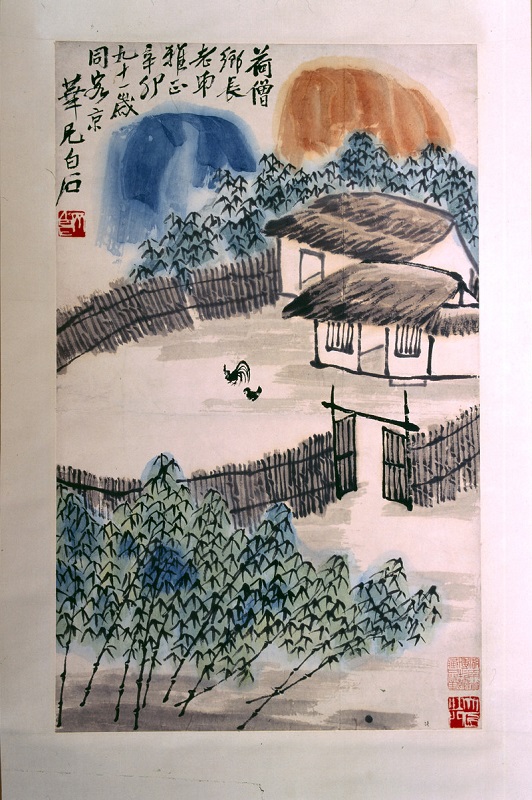 荷僧
鄉長
老甫
雅正
辛卯
九十一歲
同客京
華兄白石